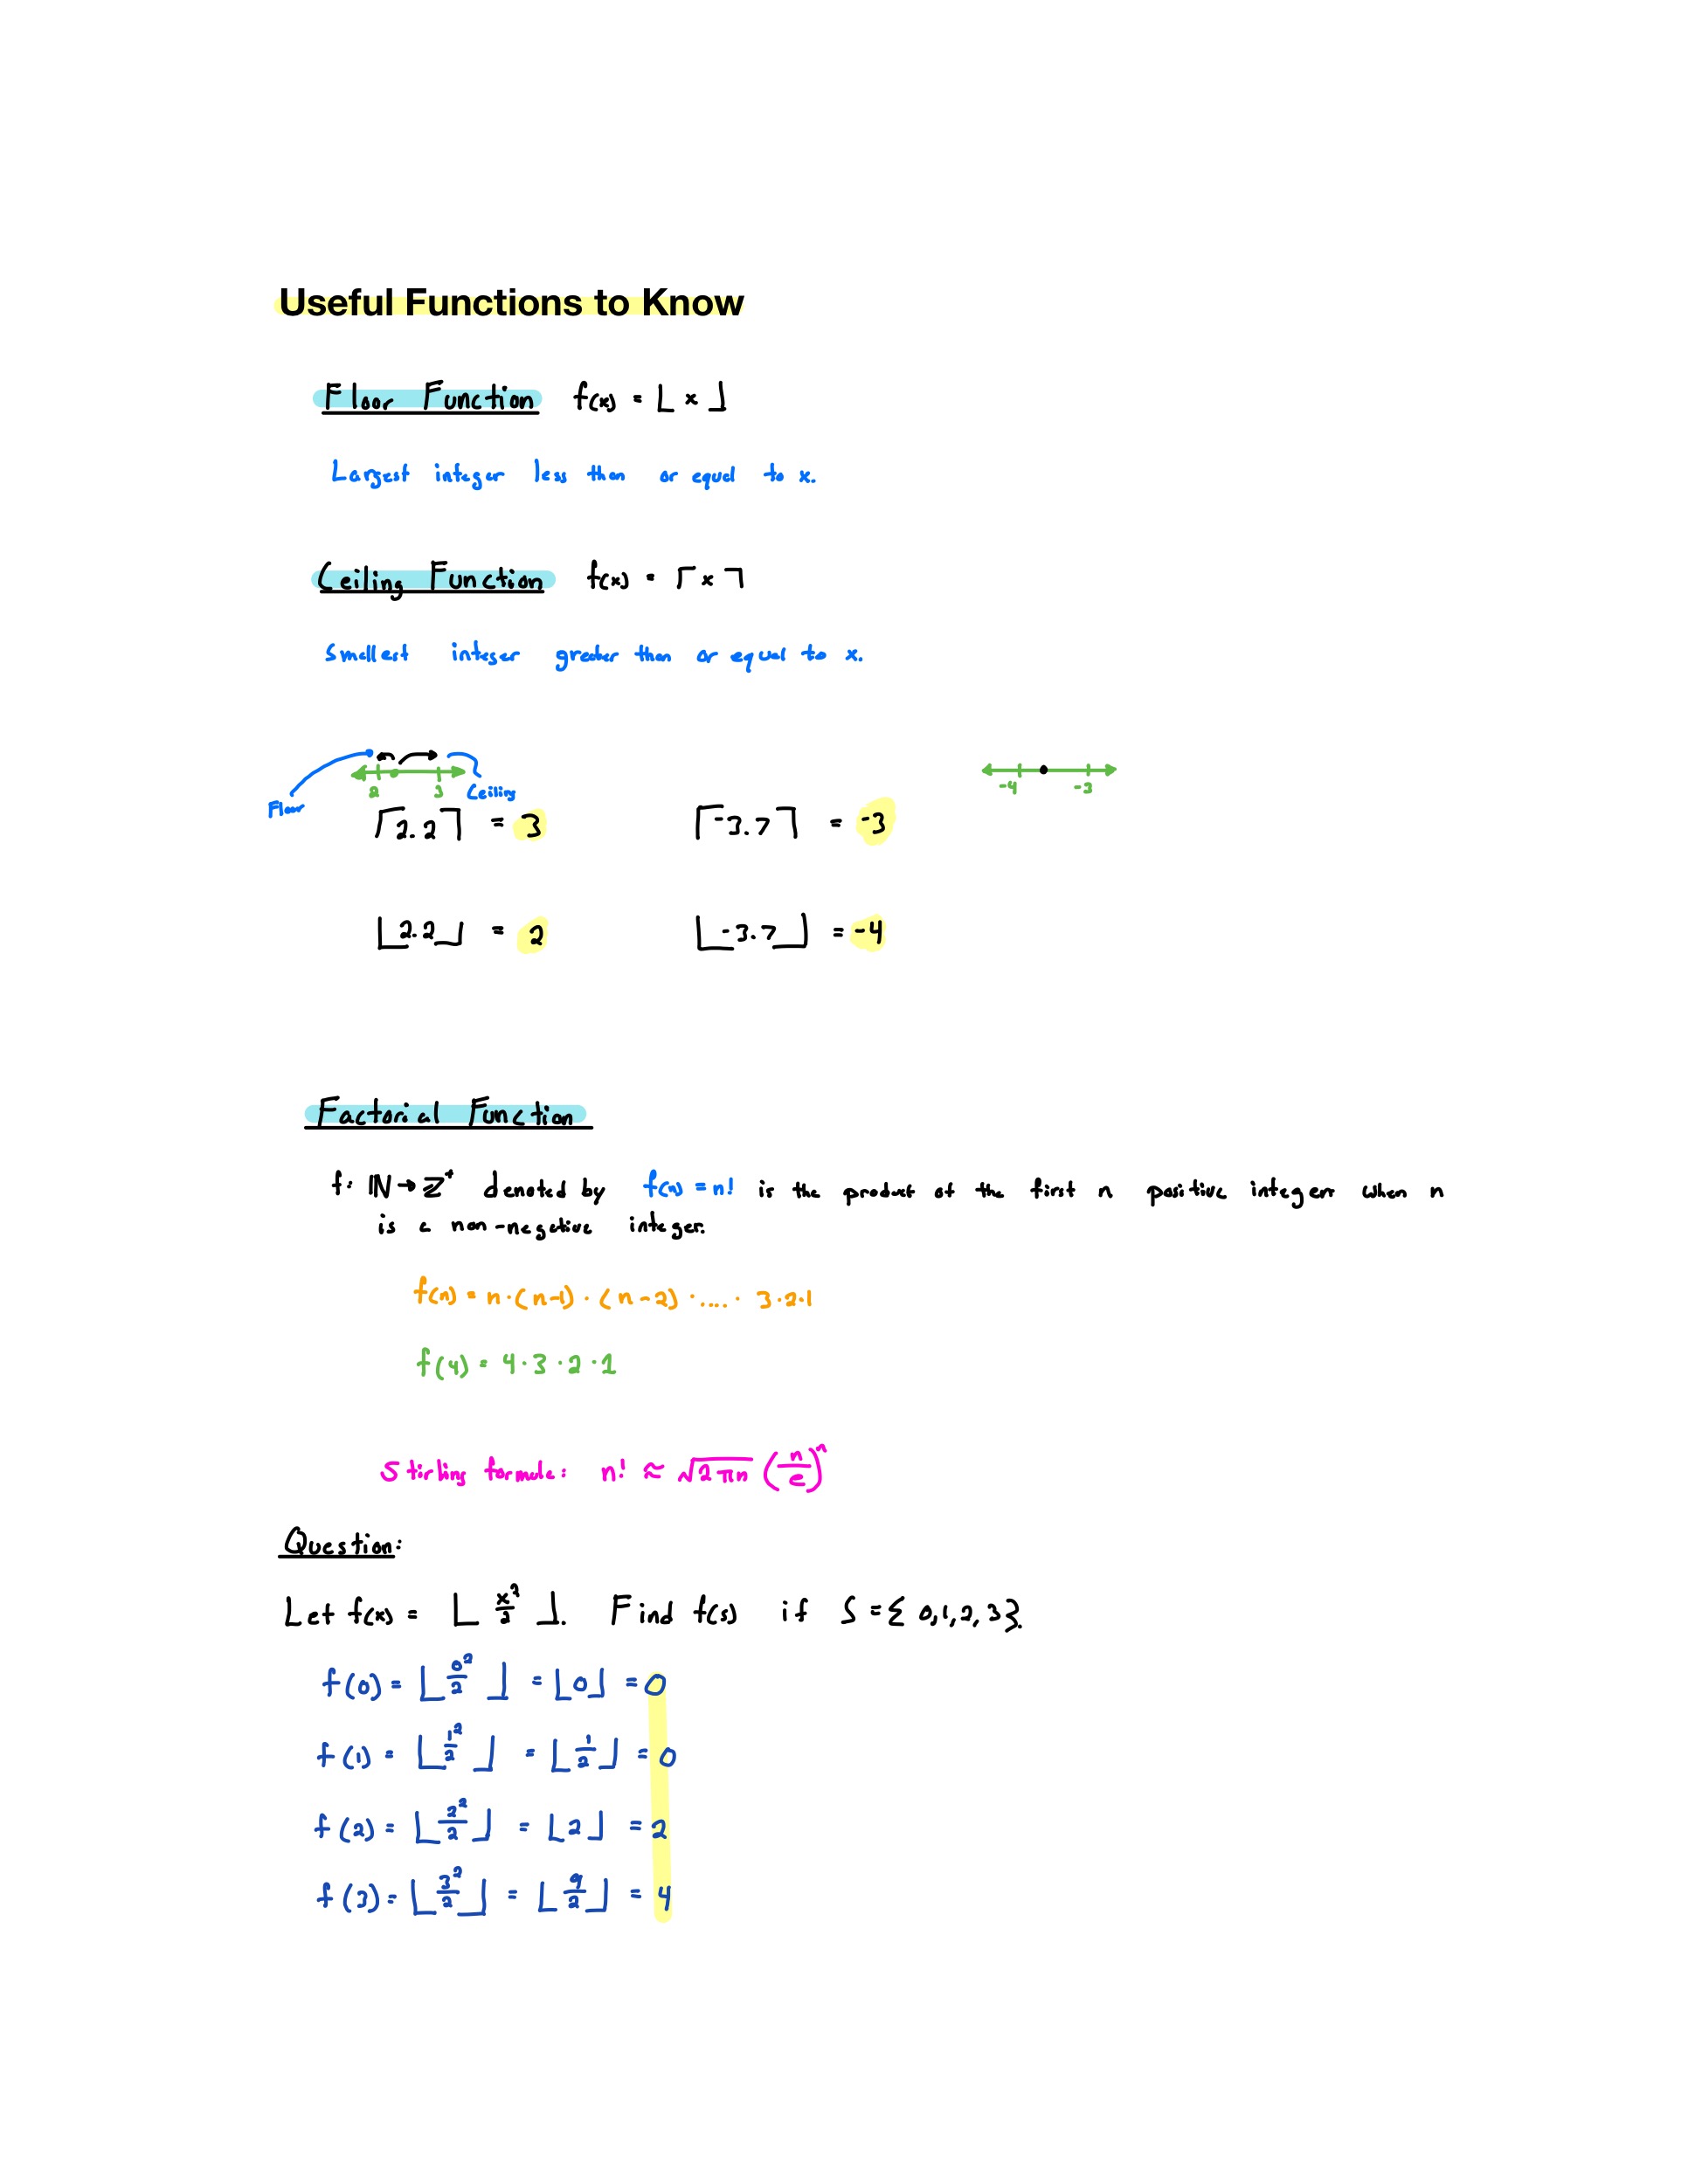 Useful Functions to Know
Floor Function f(x) = ⌊ x ⌋
Largest integer less than or equal to x.
Ceiling Function f(x) = ⌈ x ⌉
Smallest integer greater than or equal to x.
Floor 2 3 Ceiling -4 -3
⌈2.2⌉ = 3 ⌈-3.7⌉ = -3
⌊2.2⌋ = 2 ⌊-3.7⌋ = -4
Factorial Function
f: ℕ → ℤ⁺ denoted by f(n) = n! is the product of the first n positive integers when n
is a non-negative integer.
f(n) = n · (n-1) · (n-2) · .... · 3·2·1
f(4) = 4 · 3 · 2 · 1
Stirling formula: n! ≈ √(2πn) (n/e)ⁿ
Question:
Let f(x) = ⌊ x²/2 ⌋. Find f(s) if S = { 0,1,2,3}.
f(0) = ⌊ 0²/2 ⌋ = ⌊0⌋ = 0
f(1) = ⌊ 1²/2 ⌋ = ⌊ 1/2 ⌋ = 0
f(2) = ⌊ 2²/2 ⌋ = ⌊2⌋ = 2
f(3) = ⌊ 3²/2 ⌋ = ⌊ 9/2 ⌋ = 4